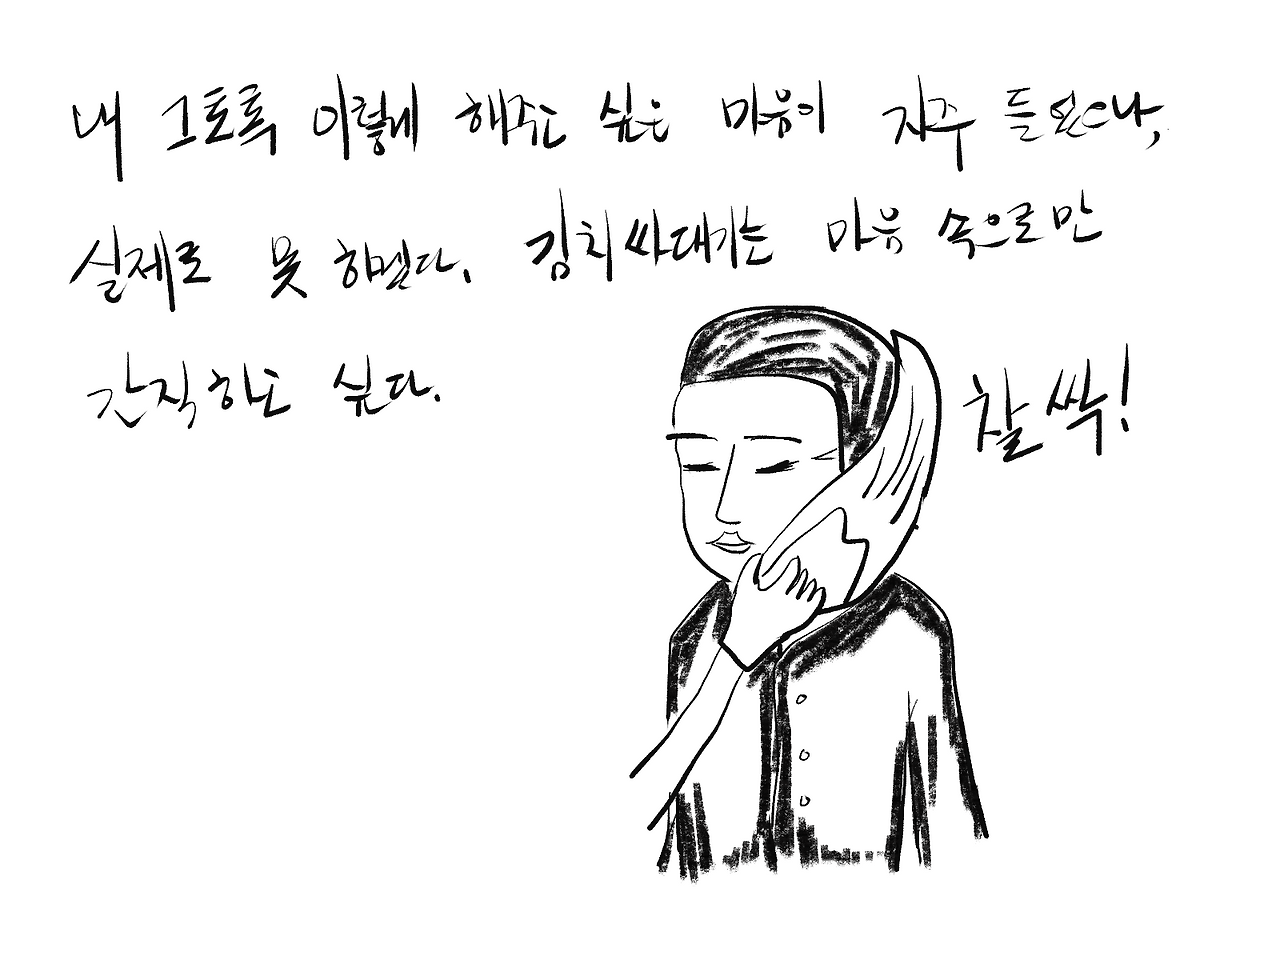 내 그토록 이렇게 해주고 싶은 마음이 자주 들었으나,
실제로 못 하겠다. 김치싸대기는 마음 속으로만
간직하고 싶다.
찰싹!